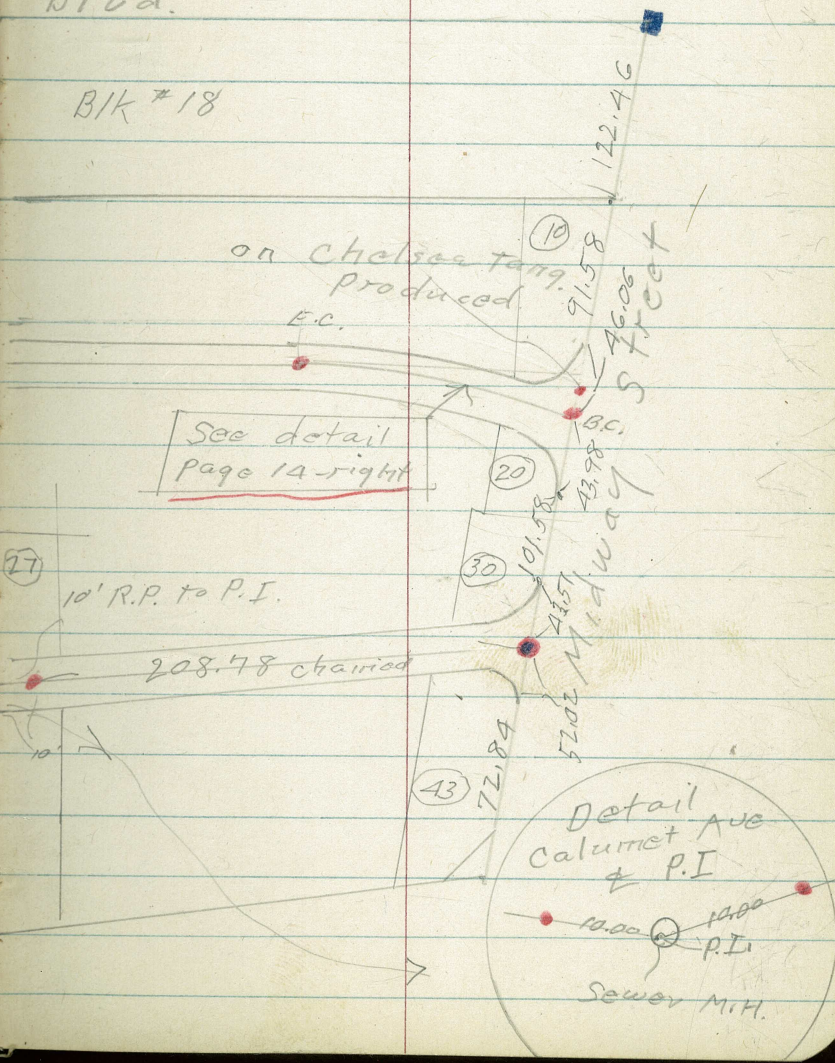 Blvd.
Blk #18
122.46
10
on Chelsea Tang.
Produced
91.58
46.06
E.C.
B.C.
See detail
page 14-right
20
43.98
Midway Street
101.58
27
30
10' R.P. to P.I.
43.51
208.78 chained
10'
52.02
43
72.84
Detail
Calumet Ave
℄ P.I
10.00
10.00
P.I.
Sewer M.H.